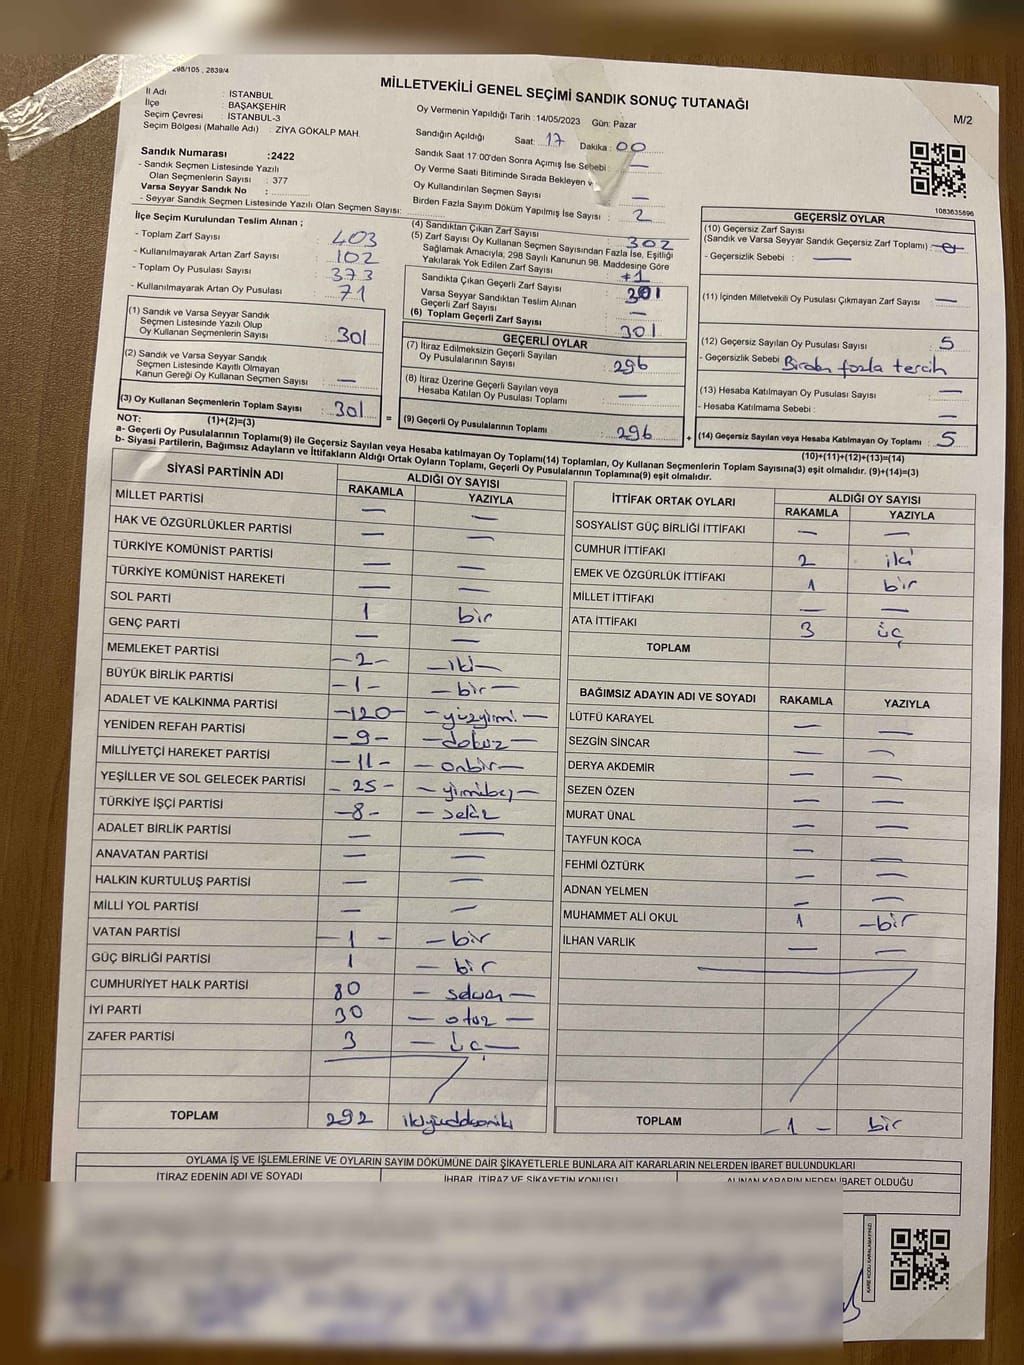 298/105 , 2839/4
MİLLETVEKİLİ GENEL SEÇİMİ SANDIK SONUÇ TUTANAĞI
M/2
İl Adı : İSTANBUL
İlçe : BAŞAKŞEHİR
Seçim Çevresi : İSTANBUL-3
Seçim Bölgesi (Mahalle Adı) : ZİYA GÖKALP MAH.
Sandık Numarası :2422
- Sandık Seçmen Listesinde Yazılı
Olan Seçmenlerin Sayısı : 377
Varsa Seyyar Sandık No :
- Seyyar Sandık Seçmen Listesinde Yazılı Olan Seçmen Sayısı:
Oy Vermenin Yapıldığı Tarih :14/05/2023 Gün: Pazar
Sandığın Açıldığı Saat: 17 Dakika : 00
Sandık Saat 17:00'den Sonra Açımış İse Sebebi : —
Oy Verme Saati Bitiminde Sırada Bekleyen
Oy Kullandırılan Seçmen Sayısı —
Birden Fazla Sayım Döküm Yapılmış İse Sayısı : 2
1083635896
İlçe Seçim Kurulundan Teslim Alınan ;
- Toplam Zarf Sayısı : 403
- Kullanılmayarak Artan Zarf Sayısı : 102
- Toplam Oy Pusulası Sayısı : 373
- Kullanılmayarak Artan Oy Pusulası : 71
(1) Sandık ve Varsa Seyyar Sandık
Seçmen Listesinde Yazılı Olup
Oy Kullanan Seçmenlerin Sayısı : 301
(2) Sandık ve Varsa Seyyar Sandık
Seçmen Listesinde Kayıtlı Olmayan
Kanun Gereği Oy Kullanan Seçmen Sayısı : —
(3) Oy Kullanan Seçmenlerin Toplam Sayısı : 301 =
(1)+(2)=(3)
(4) Sandıktan Çıkan Zarf Sayısı 302
(5) Zarf Sayısı Oy Kullanan Seçmen Sayısından Fazla İse, Eşitliği
Sağlamak Amacıyla, 298 Sayılı Kanunun 98. Maddesine Göre
Yakılarak Yok Edilen Zarf Sayısı +1
Sandıkta Çıkan Geçerli Zarf Sayısı : 301
Varsa Seyyar Sandıktan Teslim Alınan
Geçerli Zarf Sayısı : —
(6) Toplam Geçerli Zarf Sayısı 301
GEÇERLİ OYLAR
(7) İtiraz Edilmeksizin Geçerli Sayılan
Oy Pusulalarının Sayısı : 296
(8) İtiraz Üzerine Geçerli Sayılan veya
Hesaba Katılan Oy Pusulası Toplamı : —
(9) Geçerli Oy Pusulalarının Toplamı : 296 +
GEÇERSİZ OYLAR
(10) Geçersiz Zarf Sayısı
(Sandık ve Varsa Seyyar Sandık Geçersiz Zarf Toplamı)
- Geçersizlik Sebebi : —
(11) İçinden Milletvekili Oy Pusulası Çıkmayan Zarf Sayısı —
(12) Geçersiz Sayılan Oy Pusulası Sayısı 5
- Geçersizlik Sebebi Birden fazla tercih
(13) Hesaba Katılmayan Oy Pusulası Sayısı —
- Hesaba Katılmama Sebebi : —
(14) Geçersiz Sayılan veya Hesaba Katılmayan Oy Toplamı 5
(10)+(11)+(12)+(13)=(14)
NOT:
a- Geçerli Oy Pusulalarının Toplamı(9) ile Geçersiz Sayılan veya Hesaba katılmayan Oy Toplamı(14) Toplamları, Oy Kullanan Seçmenlerin Toplam Sayısına(3) eşit olmalıdır. (9)+(14)=(3)
b- Siyasi Partilerin, Bağımsız Adayların ve İttifakların Aldığı Ortak Oyların Toplamı, Geçerli Oy Pusulalarının Toplamına(9) eşit olmalıdır.
SİYASİ PARTİNİN ADI ALDIĞI OY SAYISI
RAKAMLA YAZIYLA
MİLLET PARTİSİ — —
HAK VE ÖZGÜRLÜKLER PARTİSİ — —
TÜRKİYE KOMÜNİST PARTİSİ — —
TÜRKİYE KOMÜNİST HAREKETİ — —
SOL PARTİ 1 bir
GENÇ PARTİ — —
MEMLEKET PARTİSİ -2- -iki-
BÜYÜK BİRLİK PARTİSİ -1- -bir-
ADALET VE KALKINMA PARTİSİ -120- -yüzyirmi-
YENİDEN REFAH PARTİSİ -9- -dokuz-
MİLLİYETÇİ HAREKET PARTİSİ -11- -onbir-
YEŞİLLER VE SOL GELECEK PARTİSİ -25- -yirmibeş-
TÜRKİYE İŞÇİ PARTİSİ -8- -sekiz
ADALET BİRLİK PARTİSİ — —
ANAVATAN PARTİSİ — —
HALKIN KURTULUŞ PARTİSİ — —
MİLLİ YOL PARTİSİ — —
VATAN PARTİSİ -1- -bir
GÜÇ BİRLİĞİ PARTİSİ 1 -bir
CUMHURİYET HALK PARTİSİ 80 -seksen-
İYİ PARTİ 30 -otuz-
ZAFER PARTİSİ 3 -üç-
TOPLAM 292 ikiyüzdoksaniki
İTTİFAK ORTAK OYLARI ALDIĞI OY SAYISI
RAKAMLA YAZIYLA
SOSYALİST GÜÇ BİRLİĞİ İTTİFAKI — —
CUMHUR İTTİFAKI 2 iki
EMEK VE ÖZGÜRLÜK İTTİFAKI 1 bir
MİLLET İTTİFAKI — —
ATA İTTİFAKI 3 üç
TOPLAM
BAĞIMSIZ ADAYIN ADI VE SOYADI RAKAMLA YAZIYLA
LÜTFÜ KARAYEL — —
SEZGİN SİNCAR — —
DERYA AKDEMİR — —
SEZEN ÖZEN — —
MURAT ÜNAL — —
TAYFUN KOCA — —
FEHMİ ÖZTÜRK — —
ADNAN YELMEN — —
MUHAMMET ALİ OKUL 1 -bir
İLHAN VARLIK — —
TOPLAM -1- bir
OYLAMA İŞ VE İŞLEMLERİNE VE OYLARIN SAYIM DÖKÜMÜNE DAİR ŞİKAYETLERLE BUNLARA AİT KARARLARIN NELERDEN İBARET BULUNDUKLARI
İTİRAZ EDENİN ADI VE SOYADI İHBAR, İTİRAZ VE ŞİKAYETİN KONUSU ALINAN KARARIN NEDEN İBARET OLDUĞU
KARE KODU KARALAMAYINIZ!